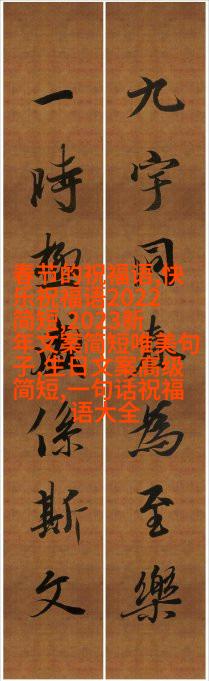 九宇同為至樂
一時係斯文
春节的祝福语,快
乐祝福语2022
简短,2023新
年文案简短唯美句
子,生日文案高级
简短,一句话祝福
语大全